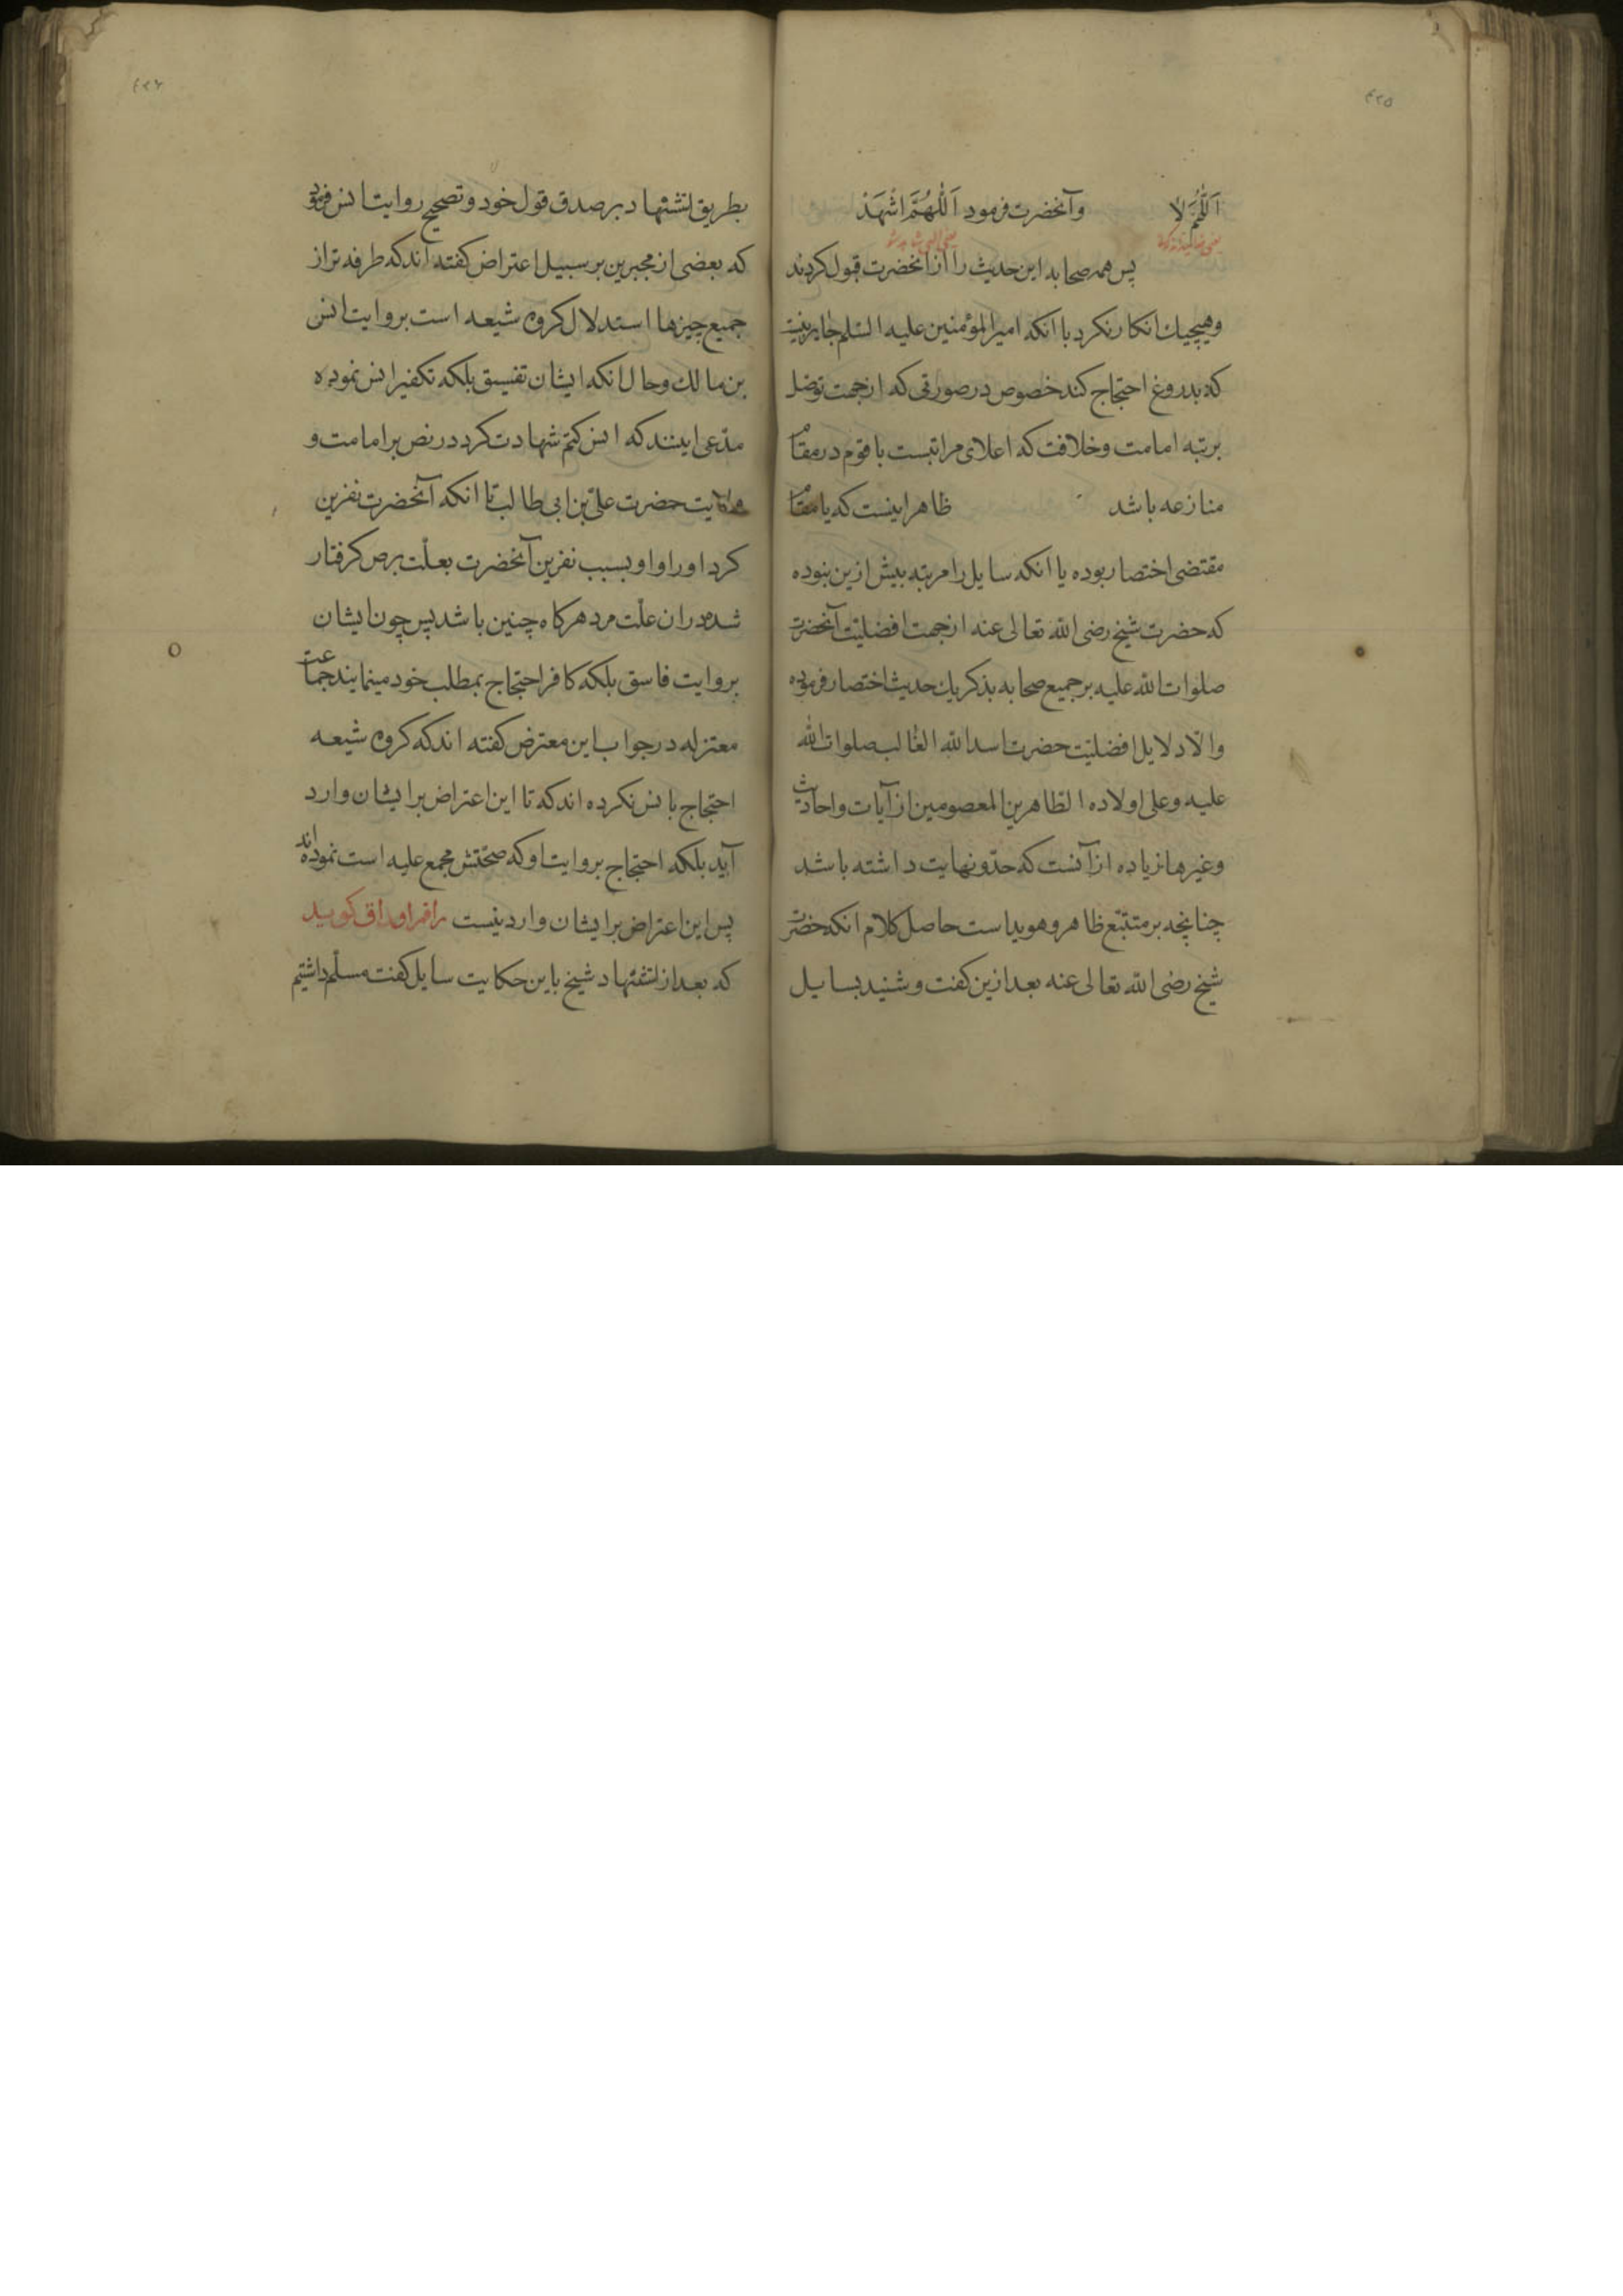 ٤٢٥
اَللّٰهُمَّ لا وآنحضرت فرمود اَللّٰهُمَّ اشْهَدْ
پس همه صحابه این حدیث را از آنحضرت قبول کردند
وهیچیك انکار نکرد با انکه امیرالمؤمنین علیه السّلم جایز نیست
که بدروغ احتجاج کند خصوص در صورتی که از جهت توصّل
برتبه امامت وخلافت که اعلای مراتبست با قوم در مقام
منازعه باشد ظاهر اینست که یا مقام
مقتضی اختصار بوده یا انکه سایل را مرتبه بیش ازین نبوده
که حضرت شیخ رضی الله تعالی عنه از جهت افضلیّت آنحضرت
صلوات الله علیه بر جمیع صحابه بذکر یك حدیث اختصار فرموده
والّا دلایل افضلیّت حضرت اسد الله الغالب صلوات الله
علیه وعلی اولاده الطّاهرین المعصومین از آیات واحادیث
وغیرها زیاده از آنست که حدّ ونهایت داشته باشد
چنانچه بر متتبّع ظاهر وهویداست حاصل کلام انکه حضرت
شیخ رضی الله تعالی عنه بعد ازین کفت وشنید بسایل
٤٢٦
بطریق استشهاد بر صدق قول خود وتصحیح روایت انس فرمود
که بعضی از مجبرین بر سبیل اعتراض کفته اند که طرفه تر از
جمیع چیزها استدلال کروه شیعه است بروایت انس
بن مالك وحال انکه ایشان تفسیق بلکه تکفیر انس نموده
مدّعی اینند که انس کتم شهادت کرد در نص بر امامت و
حضرت علیّ بن ابی طالب تا انکه آنحضرت نفرین
کرد اورا واو بسبب نفرین آنحضرت بعلّت برص کرفتار
شده در ان علّت مرد هرکاه چنین باشد پس چون ایشان
بروایت فاسق بلکه کافر احتجاج بمطلب خود مینمایند جماعت
معتزله در جواب این معترض کفته اند که کروه شیعه
احتجاج بانس نکرده اند که تا این اعتراض بر ایشان وارد
آید بلکه احتجاج بروایت او که صحّتش مجمع علیه است نموده اند
پس این اعتراض بر ایشان وارد نیست راقم اوراق کوید
که بعد از استشهاد شیخ باین حکایت سایل کفت مسلّم داشتیم